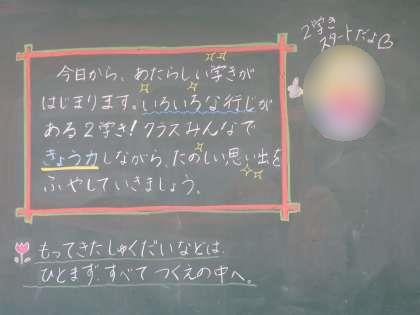 2学き
スタートだよ
今日から、あたらしい学きが
はじまります。いろいろな行じが
ある2学き!クラスみんなで
きょう力しながら、たのしい思い出を
ふやしていきましょう。
もってきたしゅくだいなどは、
ひとまず、すべて つくえの中へ。